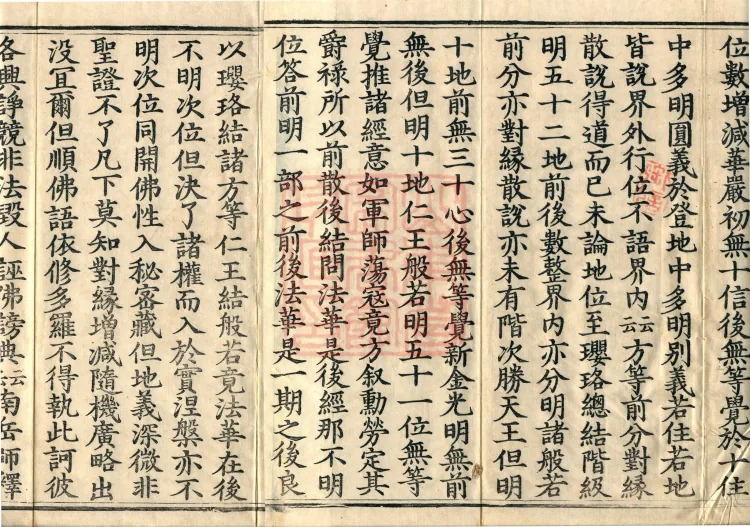 位數增減華嚴初無十信後無等覺於十住
中多明圓義於登地中多明別義若住若地
皆說界外行位不語界內云云方等前分對緣
散說得道而已未論地位至瓔珞總結階級
明五十二地前後數整界內亦分明諸般若
前分亦對緣散說亦未有階次勝天王但明
十地前無三十心後無等覺新金光明無前
無後但明十地仁王般若明五十一位無等
覺推諸經意如軍師蕩寇竟方叙勳勞定其
爵祿所以前散後結問法華是後經那不明
位答前明一部之前後法華是一期之後良
以瓔珞結諸方等仁王結般若竟法華在後
不明次位但決了諸權而入於實涅槃亦不
明次位同開佛性入秘密藏但地義深微非
聖證不了凡下莫知對緣增減隨機廣略出
沒冝爾但順佛語依修多羅不得執此訶彼
各興諍競非法毀人誣佛謗典云云南岳師繹